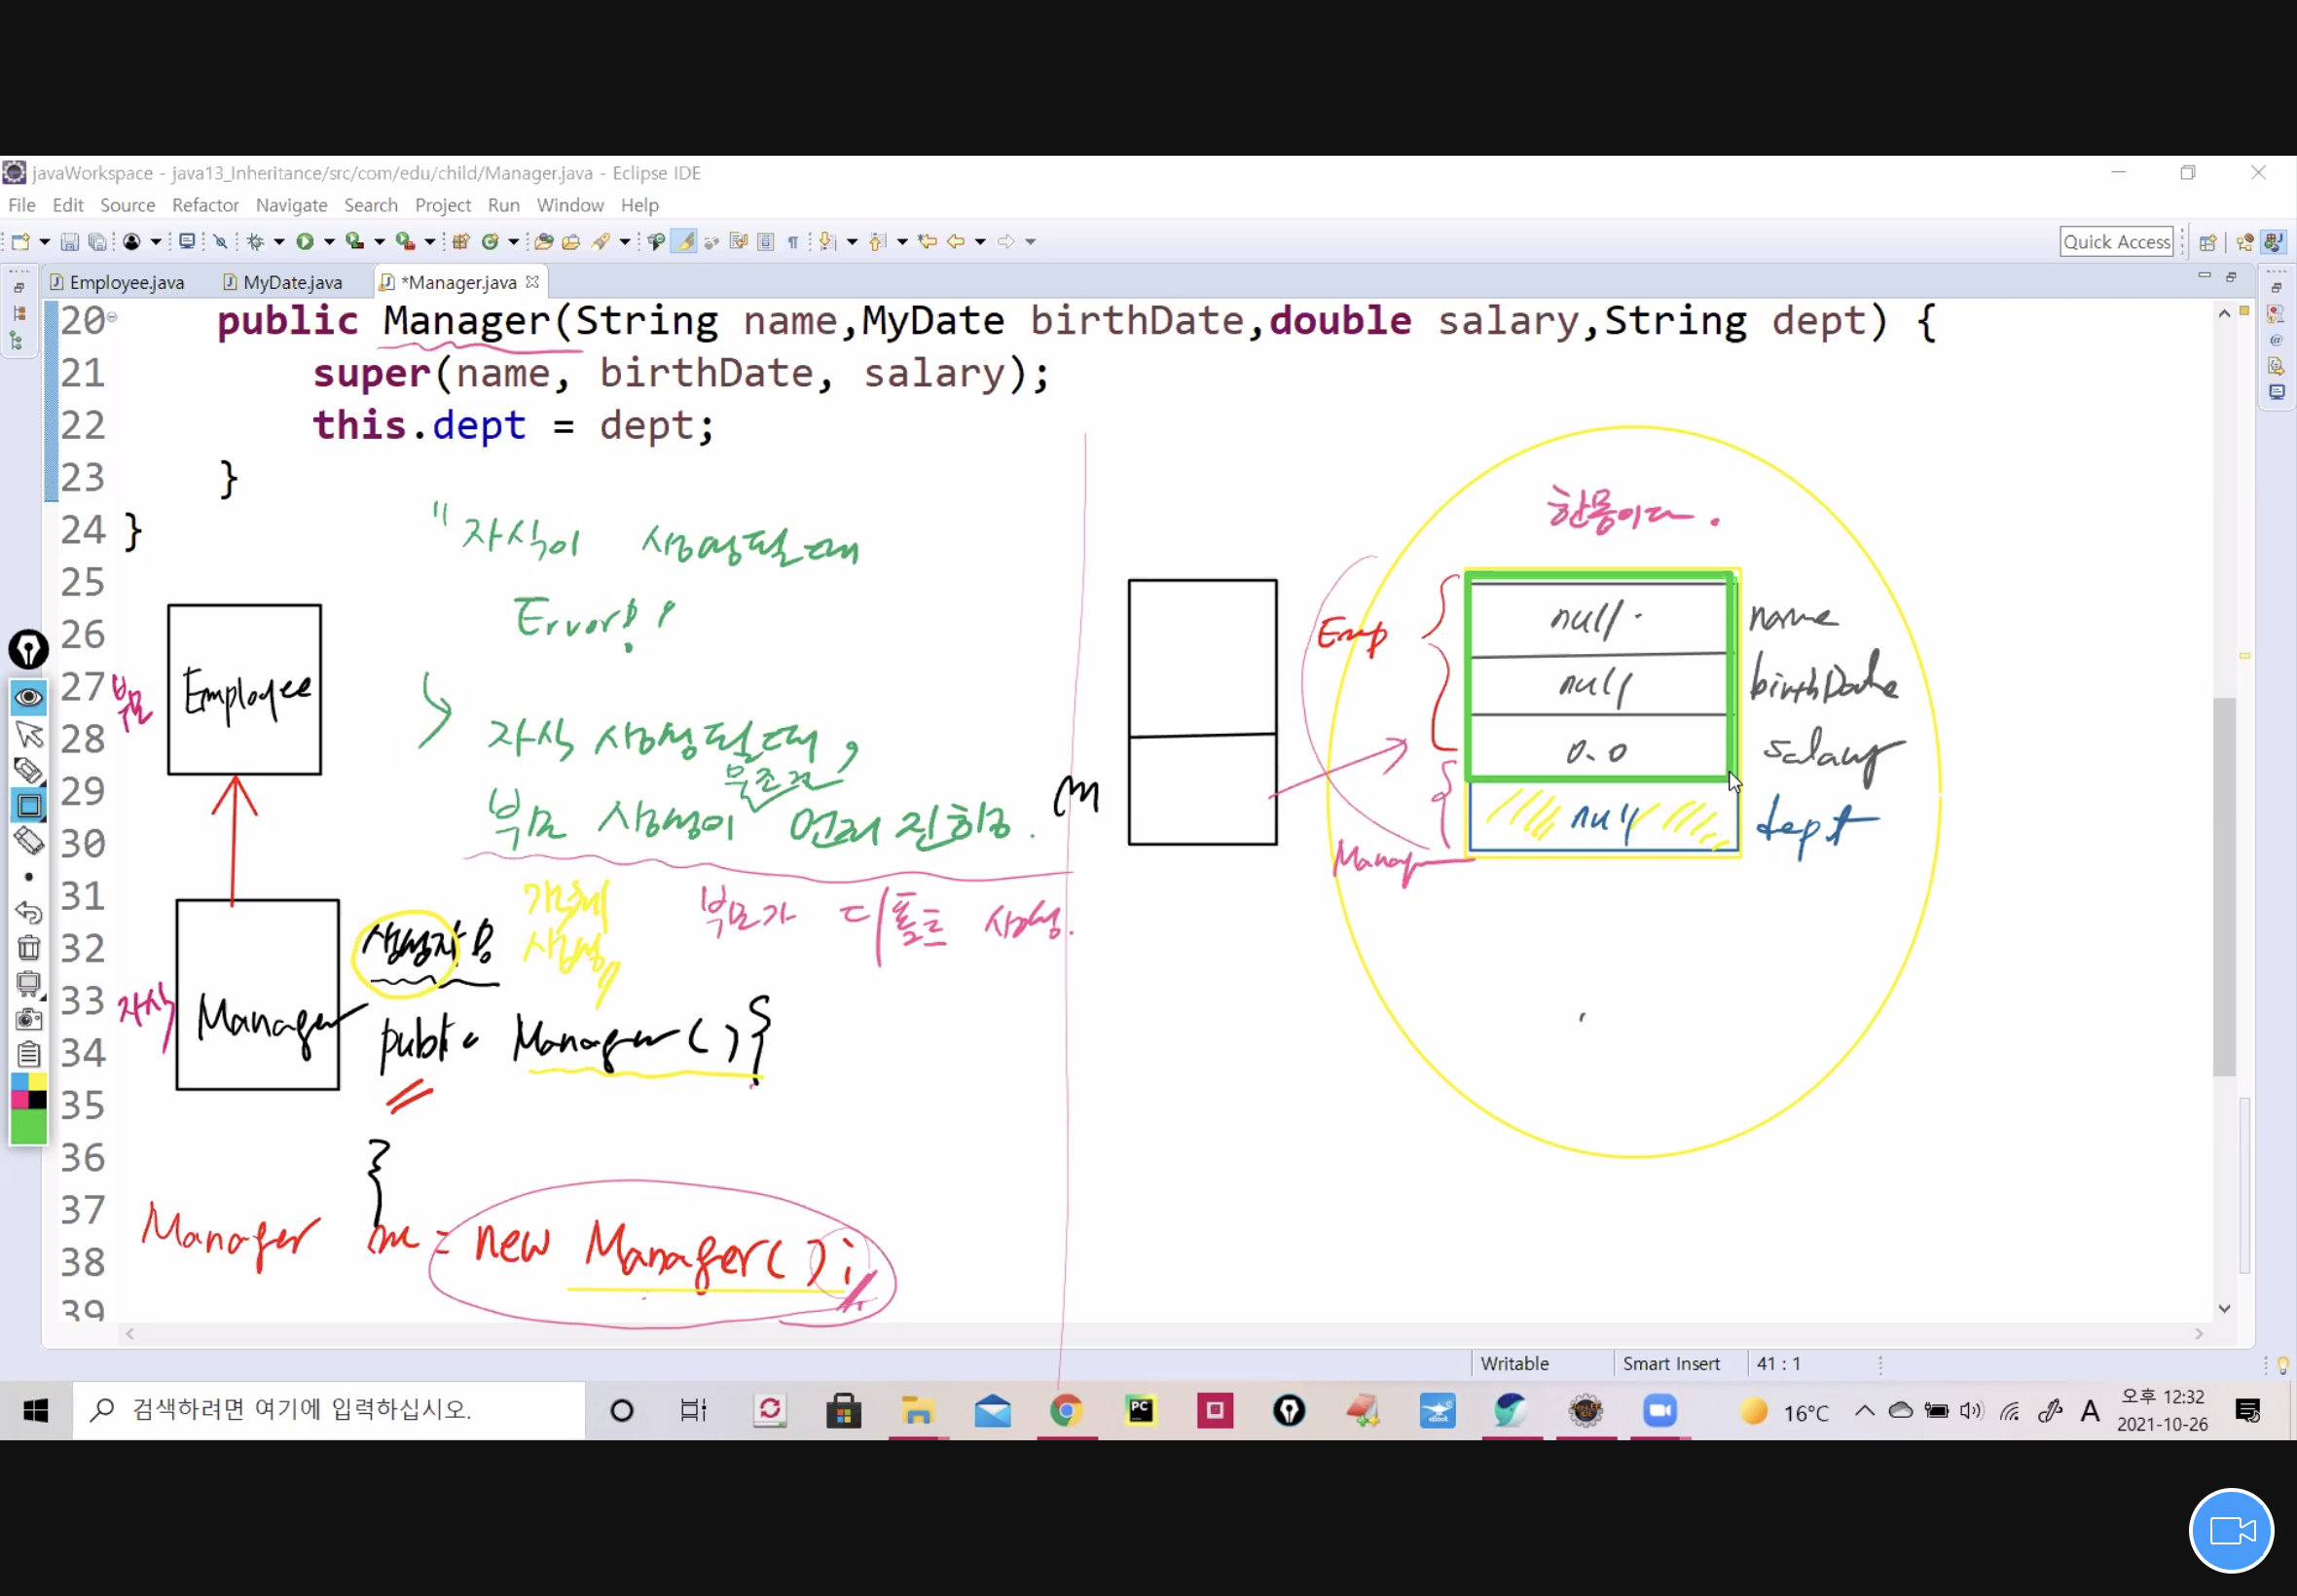 javaWorkspace - java13_Inheritance/src/com/edu/child/Manager.java - Eclipse IDE
File Edit Source Refactor Navigate Search Project Run Window Help
Quick Access
Employee.java MyDate.java *Manager.java
20 public Manager(String name,MyDate birthDate,double salary,String dept) {
21 super(name, birthDate, salary);
22 this.dept = dept;
23 }
24 }
25
26
27
28
29
30
31
32
33
34
35
36
37
38
39
"자식이 생성될때
Error!!
자식 생성될때,
무조건
부모 생성이 먼저 진행.
부모가 디폴트 생성.
부모
Employee
자식
Manager
생성자!
객체
생성
public Manager() {
}
Manager m = new Manager();
한몸이다.
Emp
null name
null birthDate
0.0 salary
null dept
m
Manag
Writable Smart Insert 41 : 1
검색하려면 여기에 입력하십시오.
PC
16°C
A
오후 12:32
2021-10-26